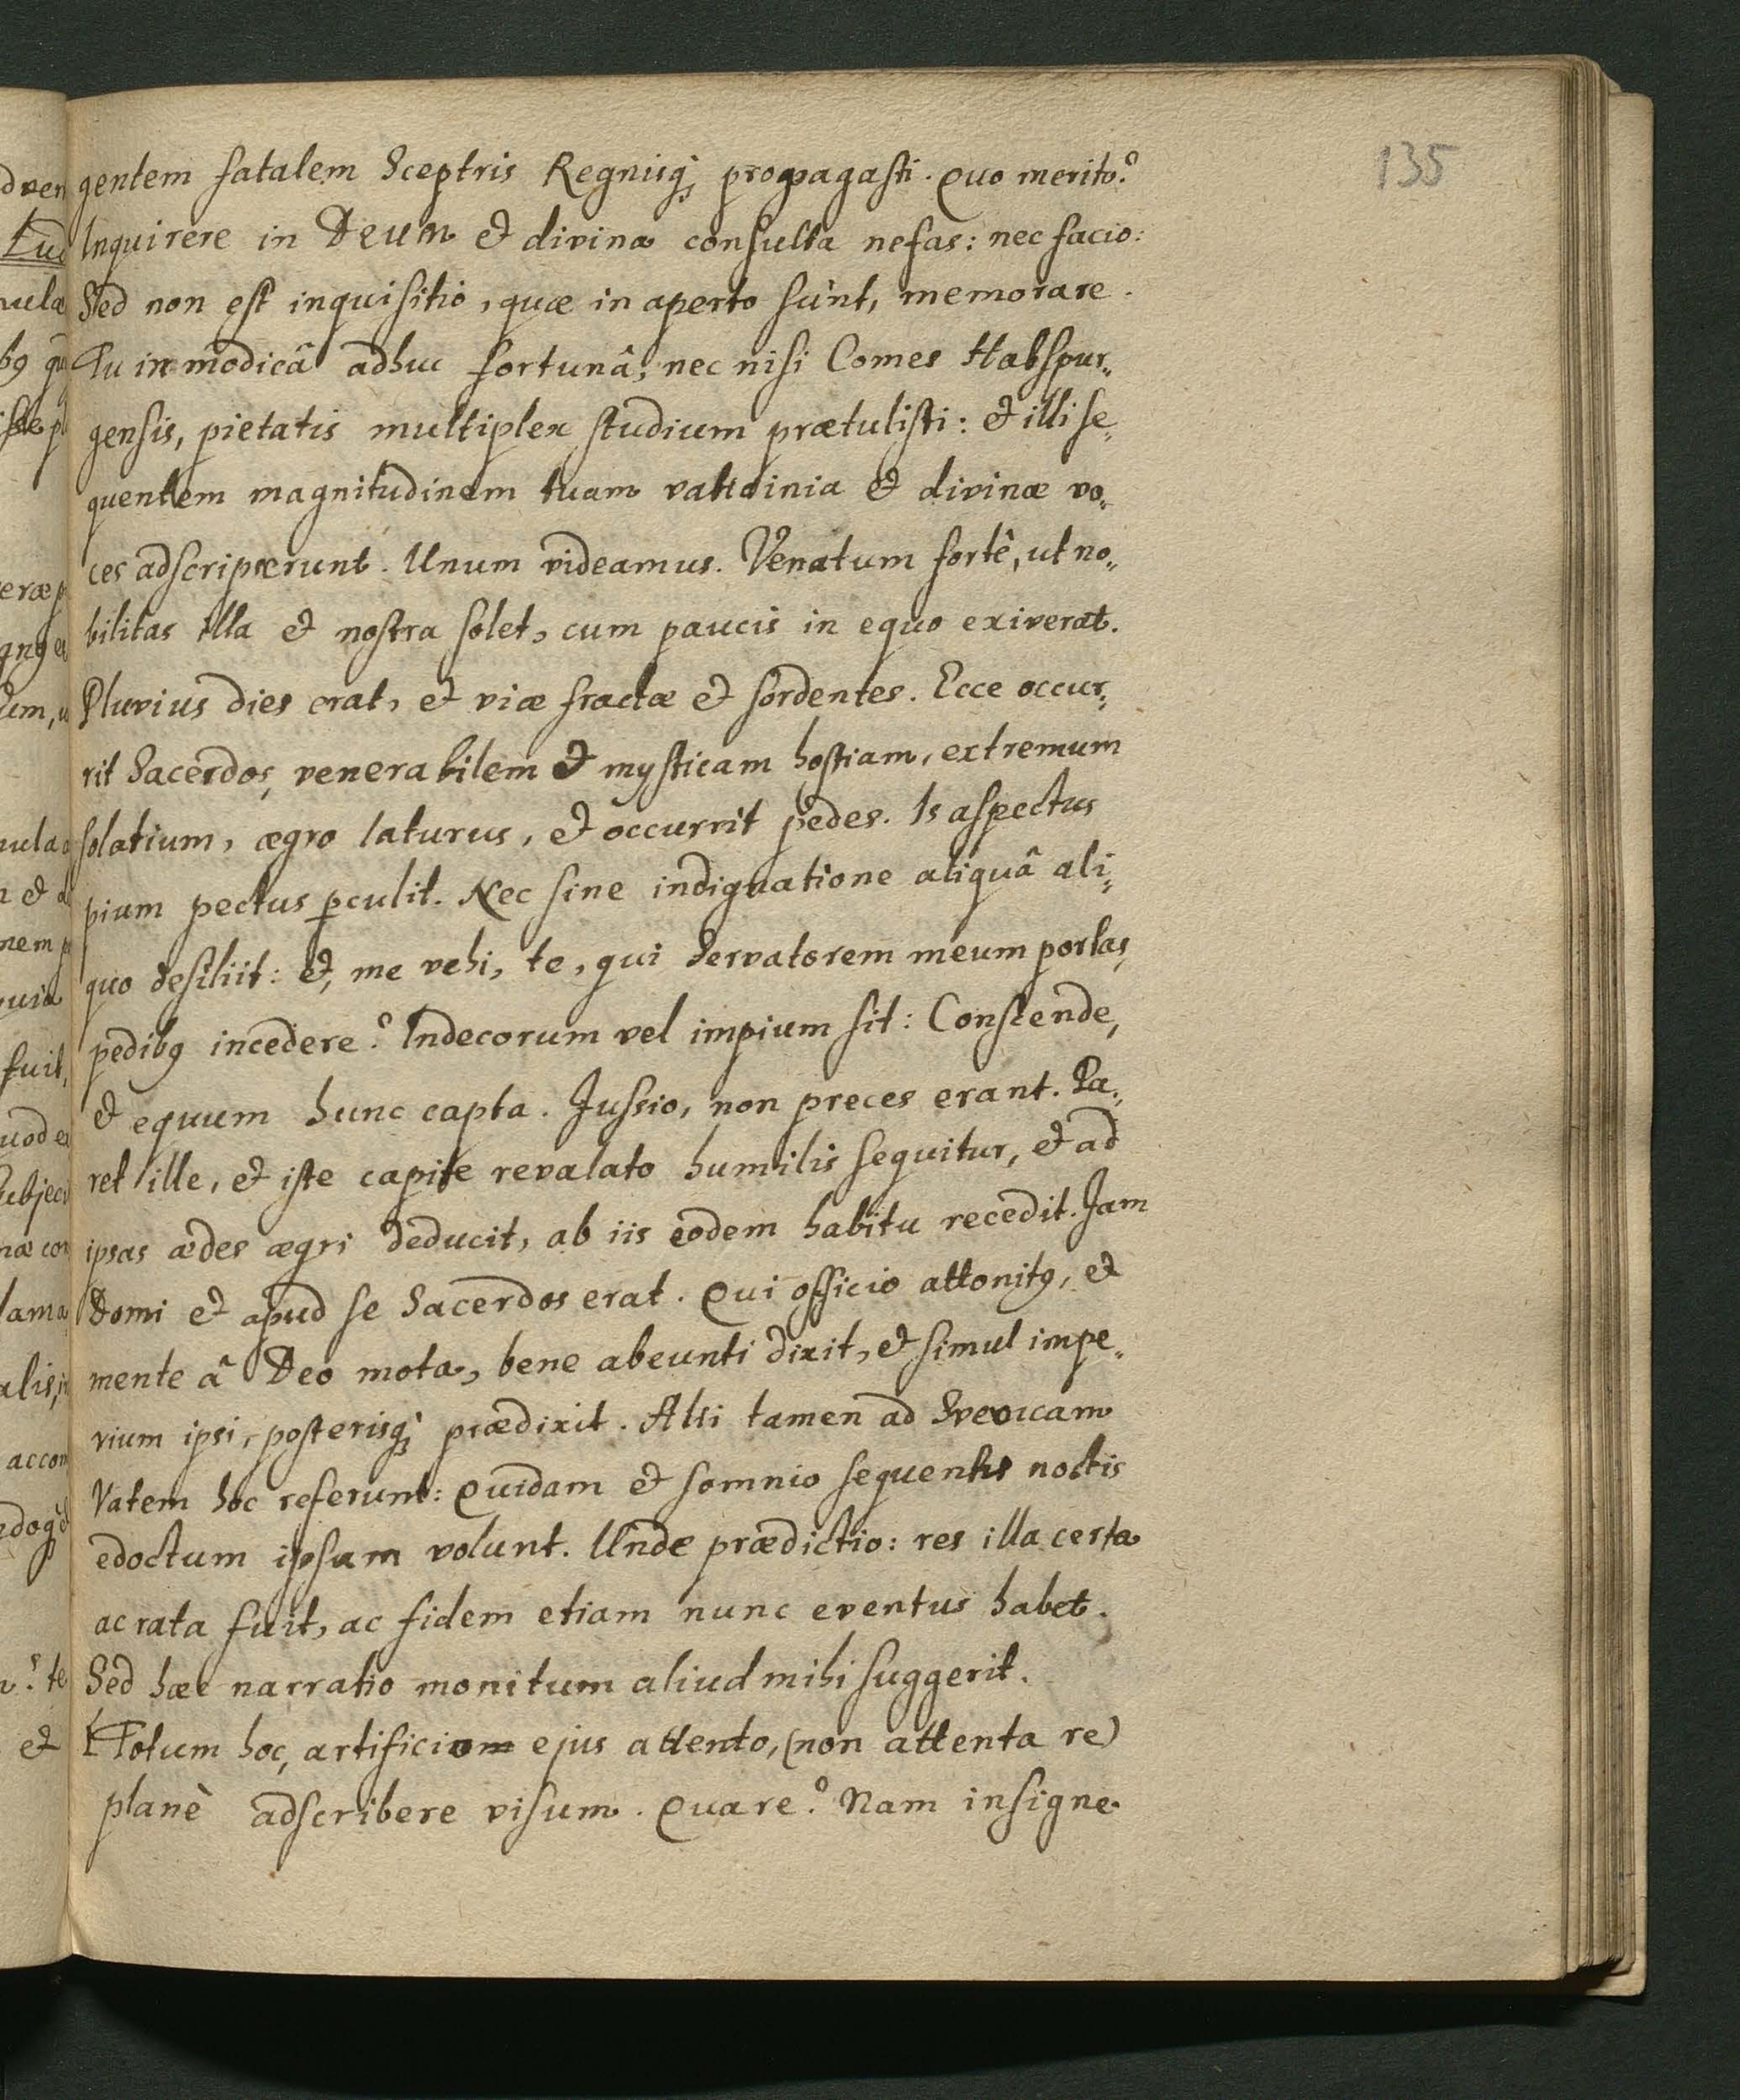 135
gentem fatalem Sceptris Regnisq; propagasti. Quo merito?
Inquirere in Deum et divina consulta nefas: nec facio:
Sed non est inquisitio, quæ in aperto sunt, memorare.
Tu in modicâ adhuc fortunâ, nec nisi Comes Habspur„
gensis, pietatis multiplex studium prætulisti: et illi se„
quentem magnitudinem tuam vaticinia et divinæ vo„
ces adscripserunt. Unum videamus. Venatum fortè, ut no„
bilitas illa et nostra solet, cum paucis in equo exiverat.
Pluvius dies erat, et viæ fractæ et sordentes. Ecce occur„
rit Sacerdos, venerabilem et mysticam hostiam, extremum
solatium, ægro laturus, et occurrit pedes. Is aspectus
pium pectus perculit. Nec sine indignatione aliquâ ali„
quo desiliit: et, me vehi, te, qui Servatorem meum portas,
pedibꝰ incedere? Indecorum vel impium sit: Conscende,
et equum hunc capta. Jussio, non preces erant. Pa„
ret ille, et iste capite revalato humilis sequitur, et ad
ipsas ædes ægri deducit, ab iis eodem habitu recedit. Jam
Domi et apud se Sacerdos erat. Qui officio attonitꝰ, et
mente â Deo mota, bene abeunti dixit, et simul impe„
rium ipsi, posterisq; prædixit. Alii tamen ad Svevicam
Vatem hoc referunt: Quidam et somnio sequentis noctis
edoctum ipsum volunt. Unde prædictio: res illa certa
ac rata fuit, ac fidem etiam nunc eventus habet.
Sed hæc narratio monitum aliud mihi suggerit.
Totum hoc, artificiom ejus attento, (non attenta re)
planè adscribere visum. Quare? Nam insigne